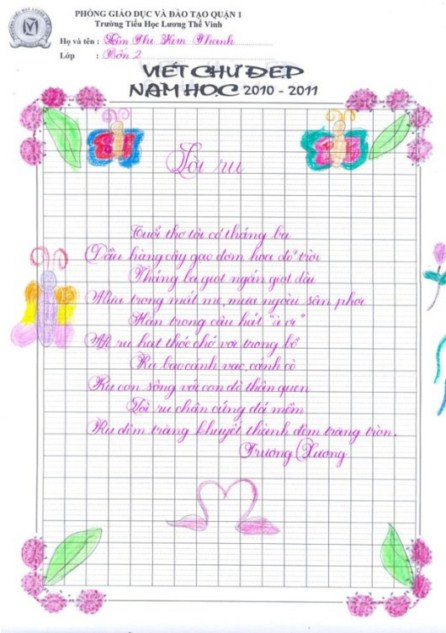 PHÒNG GIÁO DỤC VÀ ĐÀO TẠO QUẬN 1
Trường Tiểu Học Lương Thế Vinh
Họ và tên : Trần Thị Kim Thanh
Lớp : Bốn 2
VIẾT CHỮ ĐẸP
NĂM HỌC 2010 - 2011
Lời ru
Tuổi thơ tôi có tháng ba
Đầu làng cây gạo đơm hoa đỏ trời
Tháng ba giọt ngắn giọt dài
Mưa trong mắt mẹ, mưa ngoài sân phơi
Hằn trong câu hát "à ơi"
Mẹ ru hạt thóc chớ vơi trong bồ
Ru bao cánh vạc, cánh cò
Ru con sông với con đò thân quen
Lời ru chân cứng đá mềm
Ru đêm trăng khuyết thành đêm trăng tròn.
Trương Xương